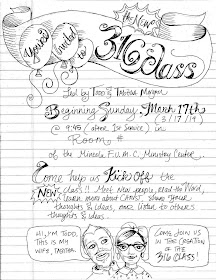 You're
Invited
to
the New
316 Class
Led by Todd & Tabitha Morgan
Beginning Sunday, March 17th
(3/17/19)
@ 9:45 (after 1st Service) in
Room #
of the Mineola F.U.M.C. Ministry Center.
Come help us Kick Off the
NEW class!! Meet new people, read the Word,
learn more about Christ, share your
thoughts & ideas, and listen to others
thoughts & ideas.
Hi, I'm Todd.
This is my
wife, Tabitha.
Come join us
in the creation
of the
316 class!